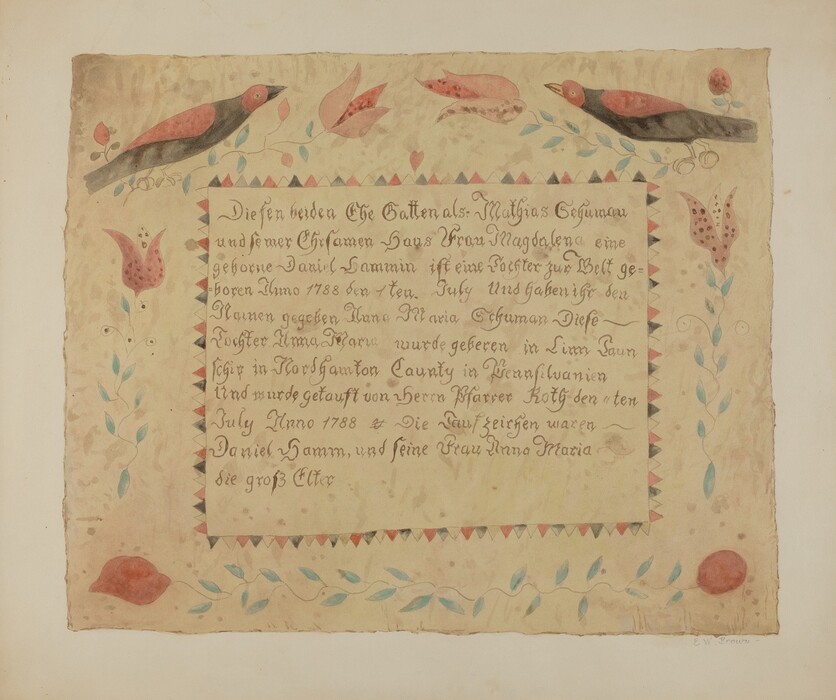 Diesen beiden Ehe Gatten als: Mathias Schuman
und seiner Ehrsamen Haus Frau Magdalena eine
geborne Daniel Hammin ist eine Tochter zur Welt ge=
=boren Anno 1788 den 1ten July Und haben ihr den
Namen gegeben Anna Maria Schuman Diese
Tochter Anna Maria wurde geboren in Linn Taun
schip in Nordhamton Caunty in Pennsilvanien
Und wurde getauft von Herrn Pfarrer Roth den ten
July Anno 1788 & Die Taufzeichen waren
Daniel Hamm, und seine Frau Anna Maria
die groß Elter
E. W.